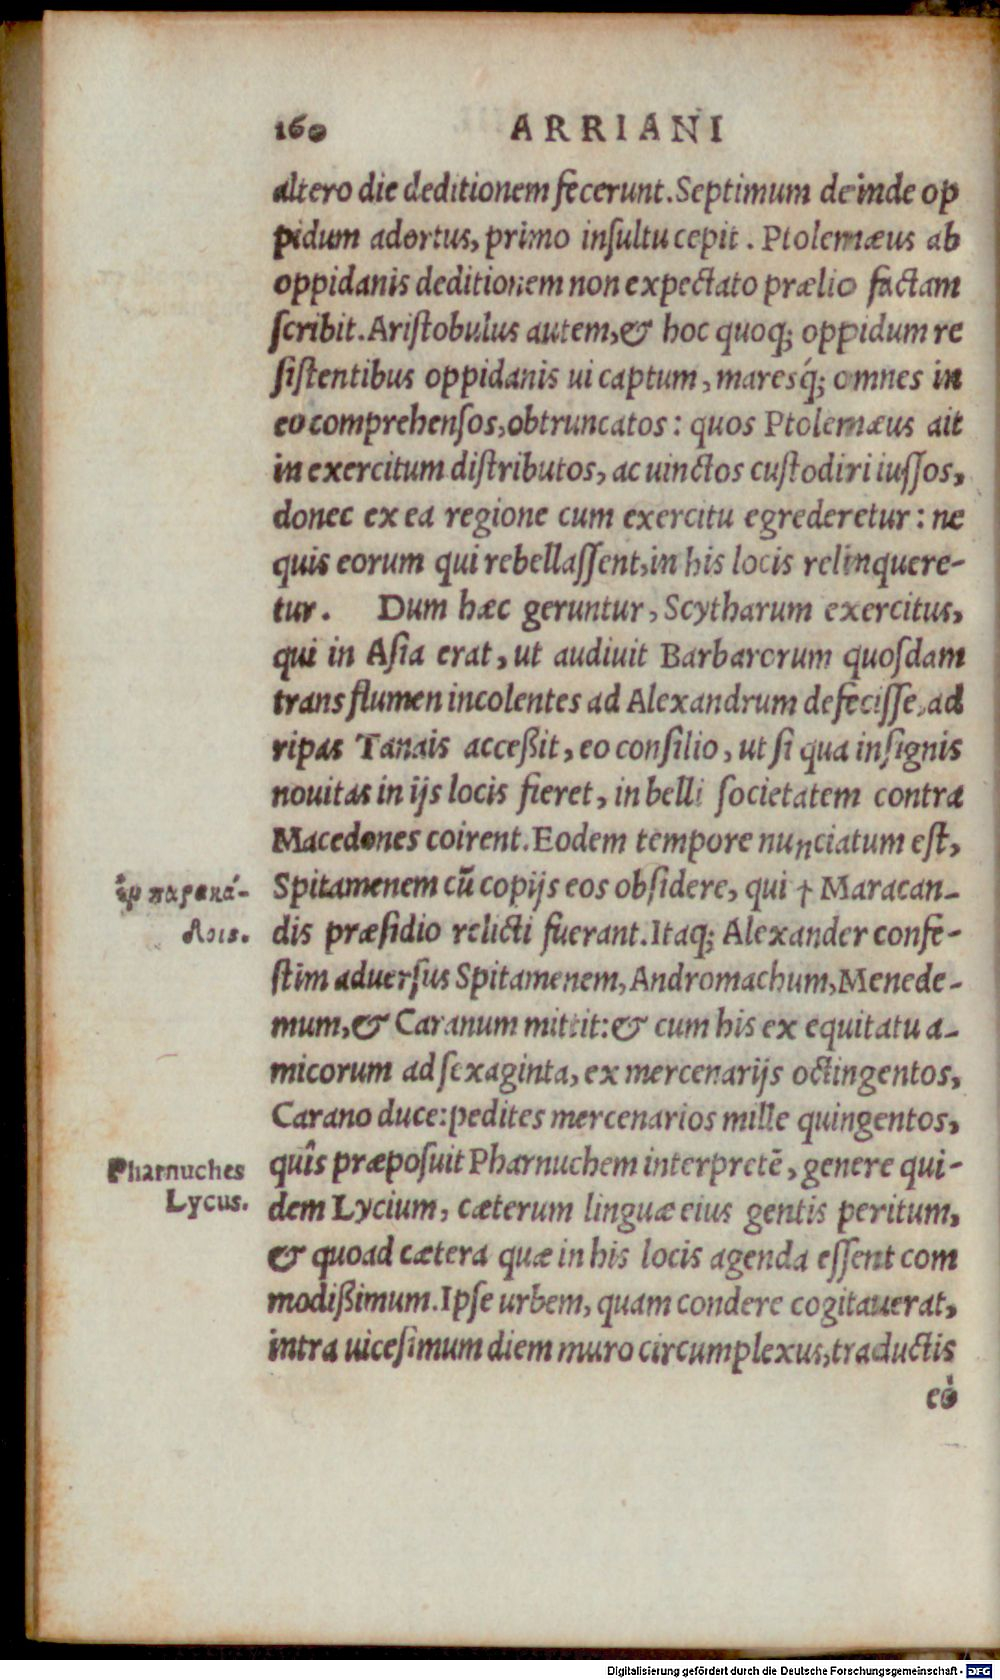 160 ARRIANI
altero die deditionem fecerunt. Septimum deinde op
pidum adortus, primo inſultu cepit. Ptolemæus ab
oppidanis deditionem non expectato prælio factam
ſcribit. Ariſtobulus autem, & hoc quoq; oppidum re
ſiſtentibus oppidanis ui captum, maresq́; omnes in
eo comprehenſos, obtruncatos: quos Ptolemæus ait
in exercitum diſtributos, ac uinctos cuſtodiri iuſſos,
donec ex ea regione cum exercitu egrederetur: ne
quis eorum qui rebellaſſent, in his locis relinquere-
tur. Dum hæc geruntur, Scytharum exercitus,
qui in Aſia erat, ut audiuit Barbarorum quoſdam
trans flumen incolentes ad Alexandrum defeciſſe, ad
ripas Tanais acceßit, eo conſilio, ut ſi qua inſignis
nouitas in ijs locis fieret, in belli ſocietatem contra
Macedones coirent. Eodem tempore nunciatum eſt,
Spitamenem cū copijs eos obſidere, qui † Maracan-
dis præſidio relicti fuerant. Itaq; Alexander confe-
ſtim aduerſus Spitamenem, Andromachum, Menede-
mum, & Caranum mittit: & cum his ex equitatu a-
micorum ad ſexaginta, ex mercenarijs octingentos,
Carano duce: pedites mercenarios mille quingentos,
quîs præpoſuit Pharnuchem interpretē, genere qui-
dem Lycium, cæterum linguæ eius gentis peritum,
& quoad cætera quæ in his locis agenda eſſent com
modißimum. Ipſe urbem, quam condere cogitauerat,
intra uiceſimum diem muro circumplexus, traductis
eò
Pharnuches
Lycus.